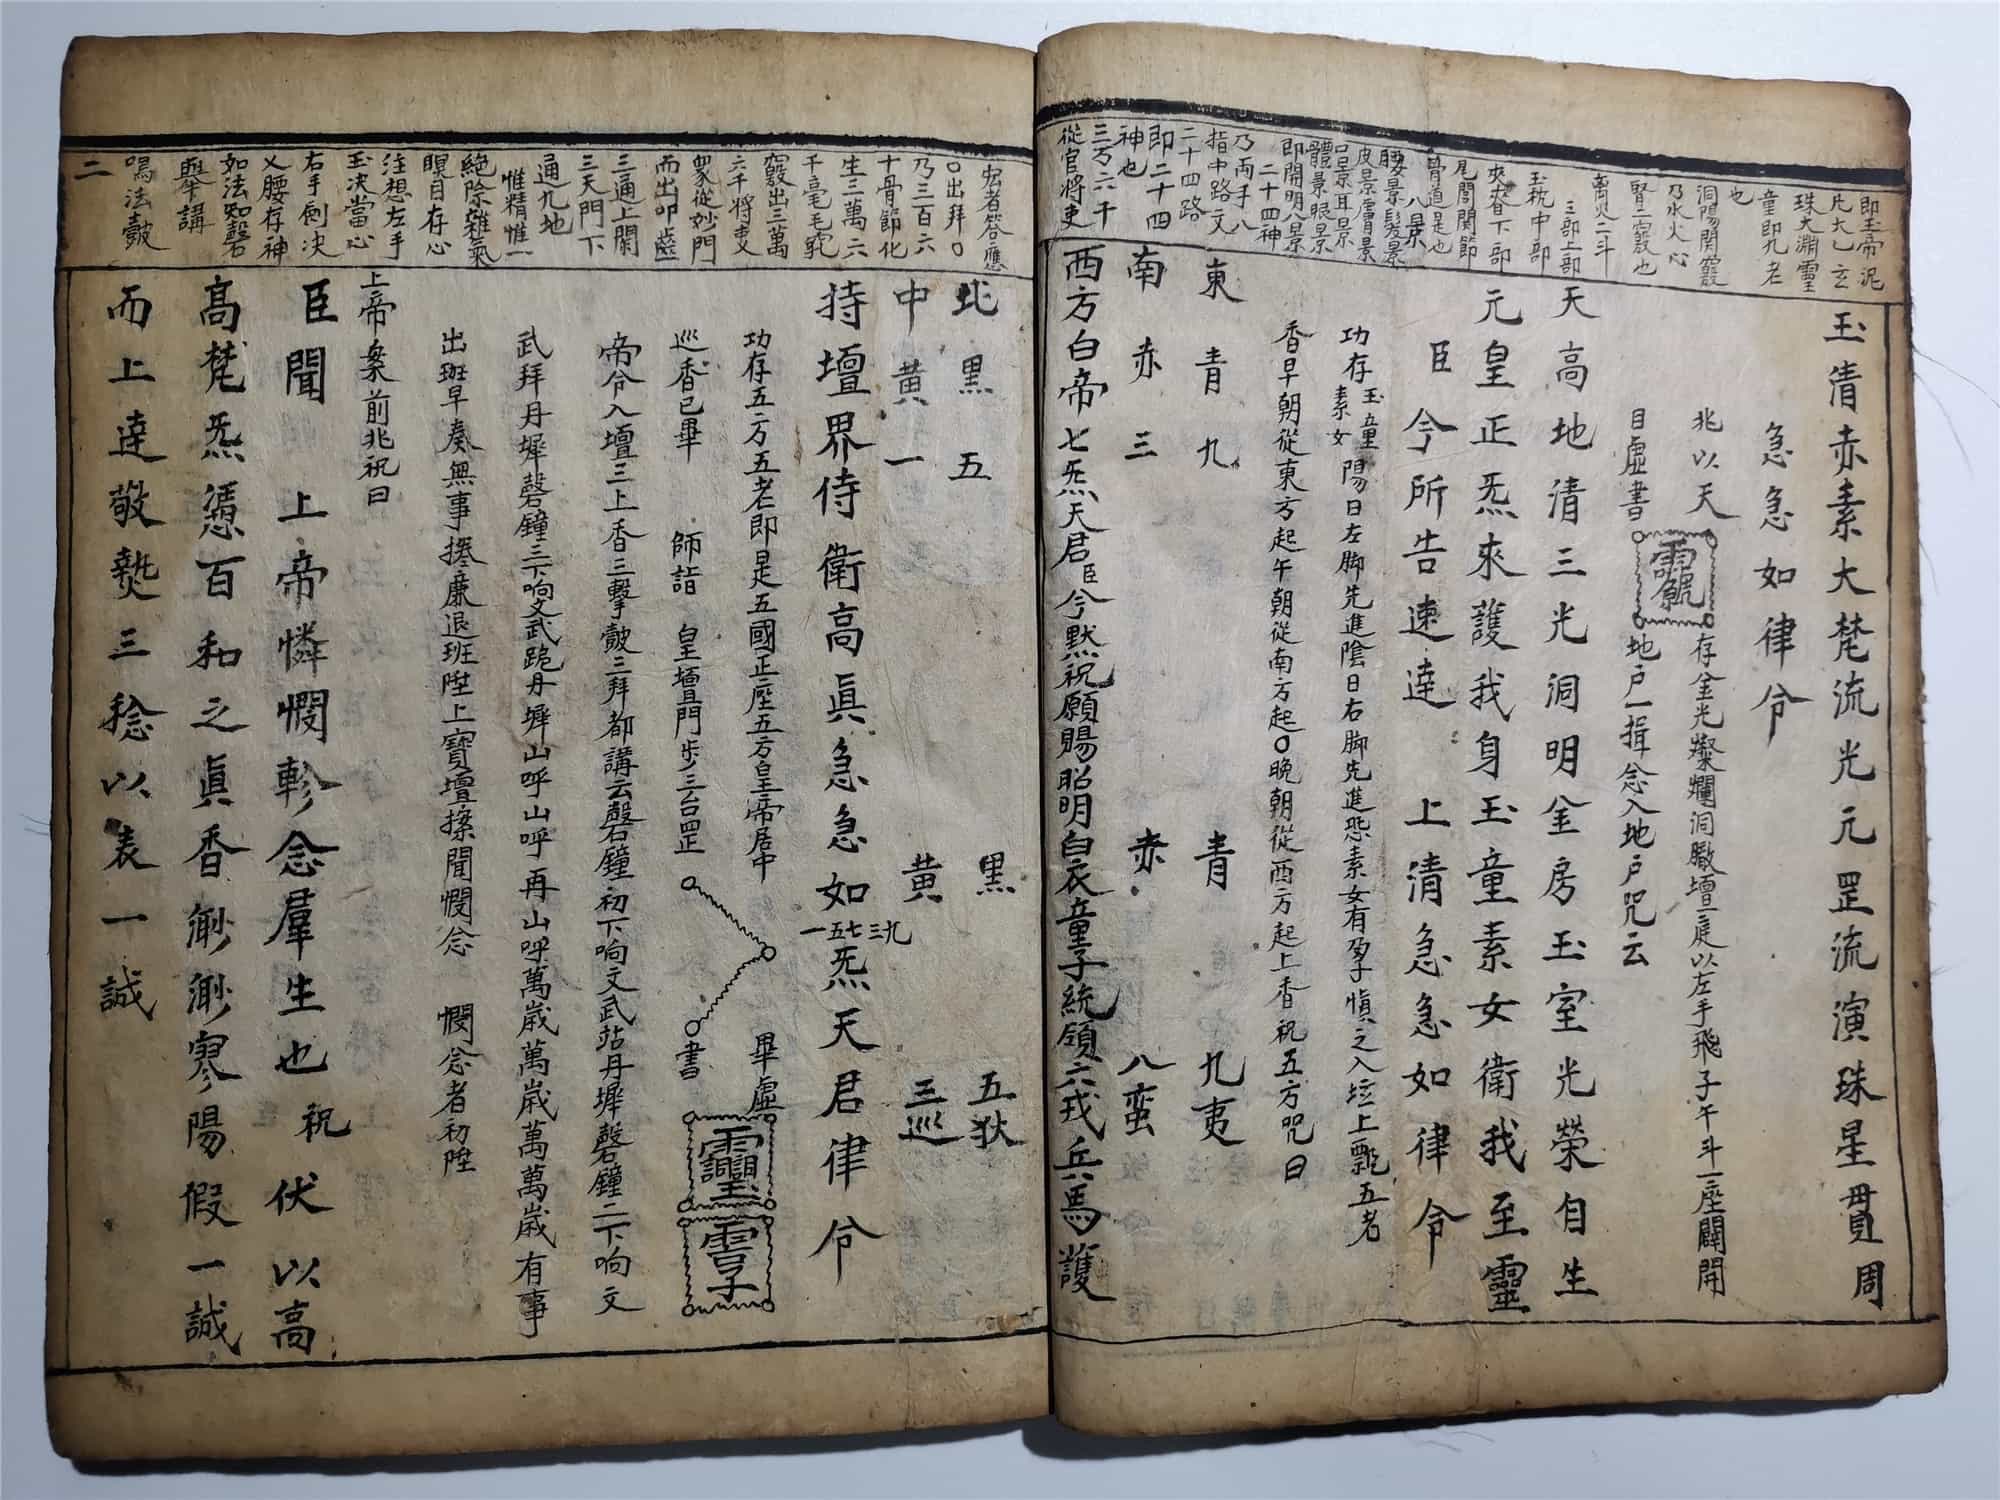 即玉帝泥
丸太乙玄
珠大淵靈
童即九老
也
洞陽開竅
乃水火心
腎二竅也
离火二斗
三部上部
玉枕中部
夾脊下部
尾閭関節
骨道是也
八景
腰景髮景
皮景膚景
口景耳景
體景眼景
即開明八景
二十四神
乃両手八
指中路文
二十四路
即二十四
神也
三万六千
從官將吏
玉清赤素大梵流光元罡流演珠星貫周
急急如律令
兆以天目虛書
存金光燦爛洞曒壇庭以左手飛子午斗一座闢開
地户一揖念入地户咒云
天高地清三光洞明金房玉室光榮自生
元皇正炁來護我身玉童素女衛我至靈
臣今所告速達 上清急急如律令
功存玉童素女陽日左脚先進陰日右脚先進恐素女有孕子慎之入坛上瓢五老
香早朝從東方起午朝從南方起〇晚朝從西方起上香祝五方咒曰
東 青 九 青 九夷
南 赤 三 赤 八蛮
西方白帝七炁天君臣今黙祝願賜昭明白衣童子統領六戎兵馬護
宏者答應
〇出拜〇
乃三百六
十骨節化
生三萬六
千毫毛竅
竅出三萬
六千將吏
衆從妙門
而出叩齒
三通上閞
三天門下
通九地
惟精惟一
絶除雜氣
瞑目存心
注想左手
玉决當心
右手劍决
乂腰存神
如法知磬
舉講
鳴法鼓
二
北 黒 五 黒 五狄
中 黄 一 黄 三巡
持壇界侍衛高眞急急如九三七五一炁天君律令
功存五方五老即是五國正座五方皇帝居中
巡香已畢 師詣 皇壇門步三台罡 畢虛書
帝令入壇三上香三擊鼓三拜都講云磬鐘初下响文武站丹墀磬鐘二下响文
武拜丹墀磬鐘三下响文武跪丹墀山呼山呼再山呼萬歲萬歲萬萬歲有事
出班早奏無事捲廉退班陞上寶壇搽聞憫念 憫念者初陞
上帝案前兆祝曰
臣聞 上帝憐憫軫念羣生也祝伏以高
高梵炁憑百和之眞香渺渺寥陽假一誠
而上達敬爇三稔以表一誠